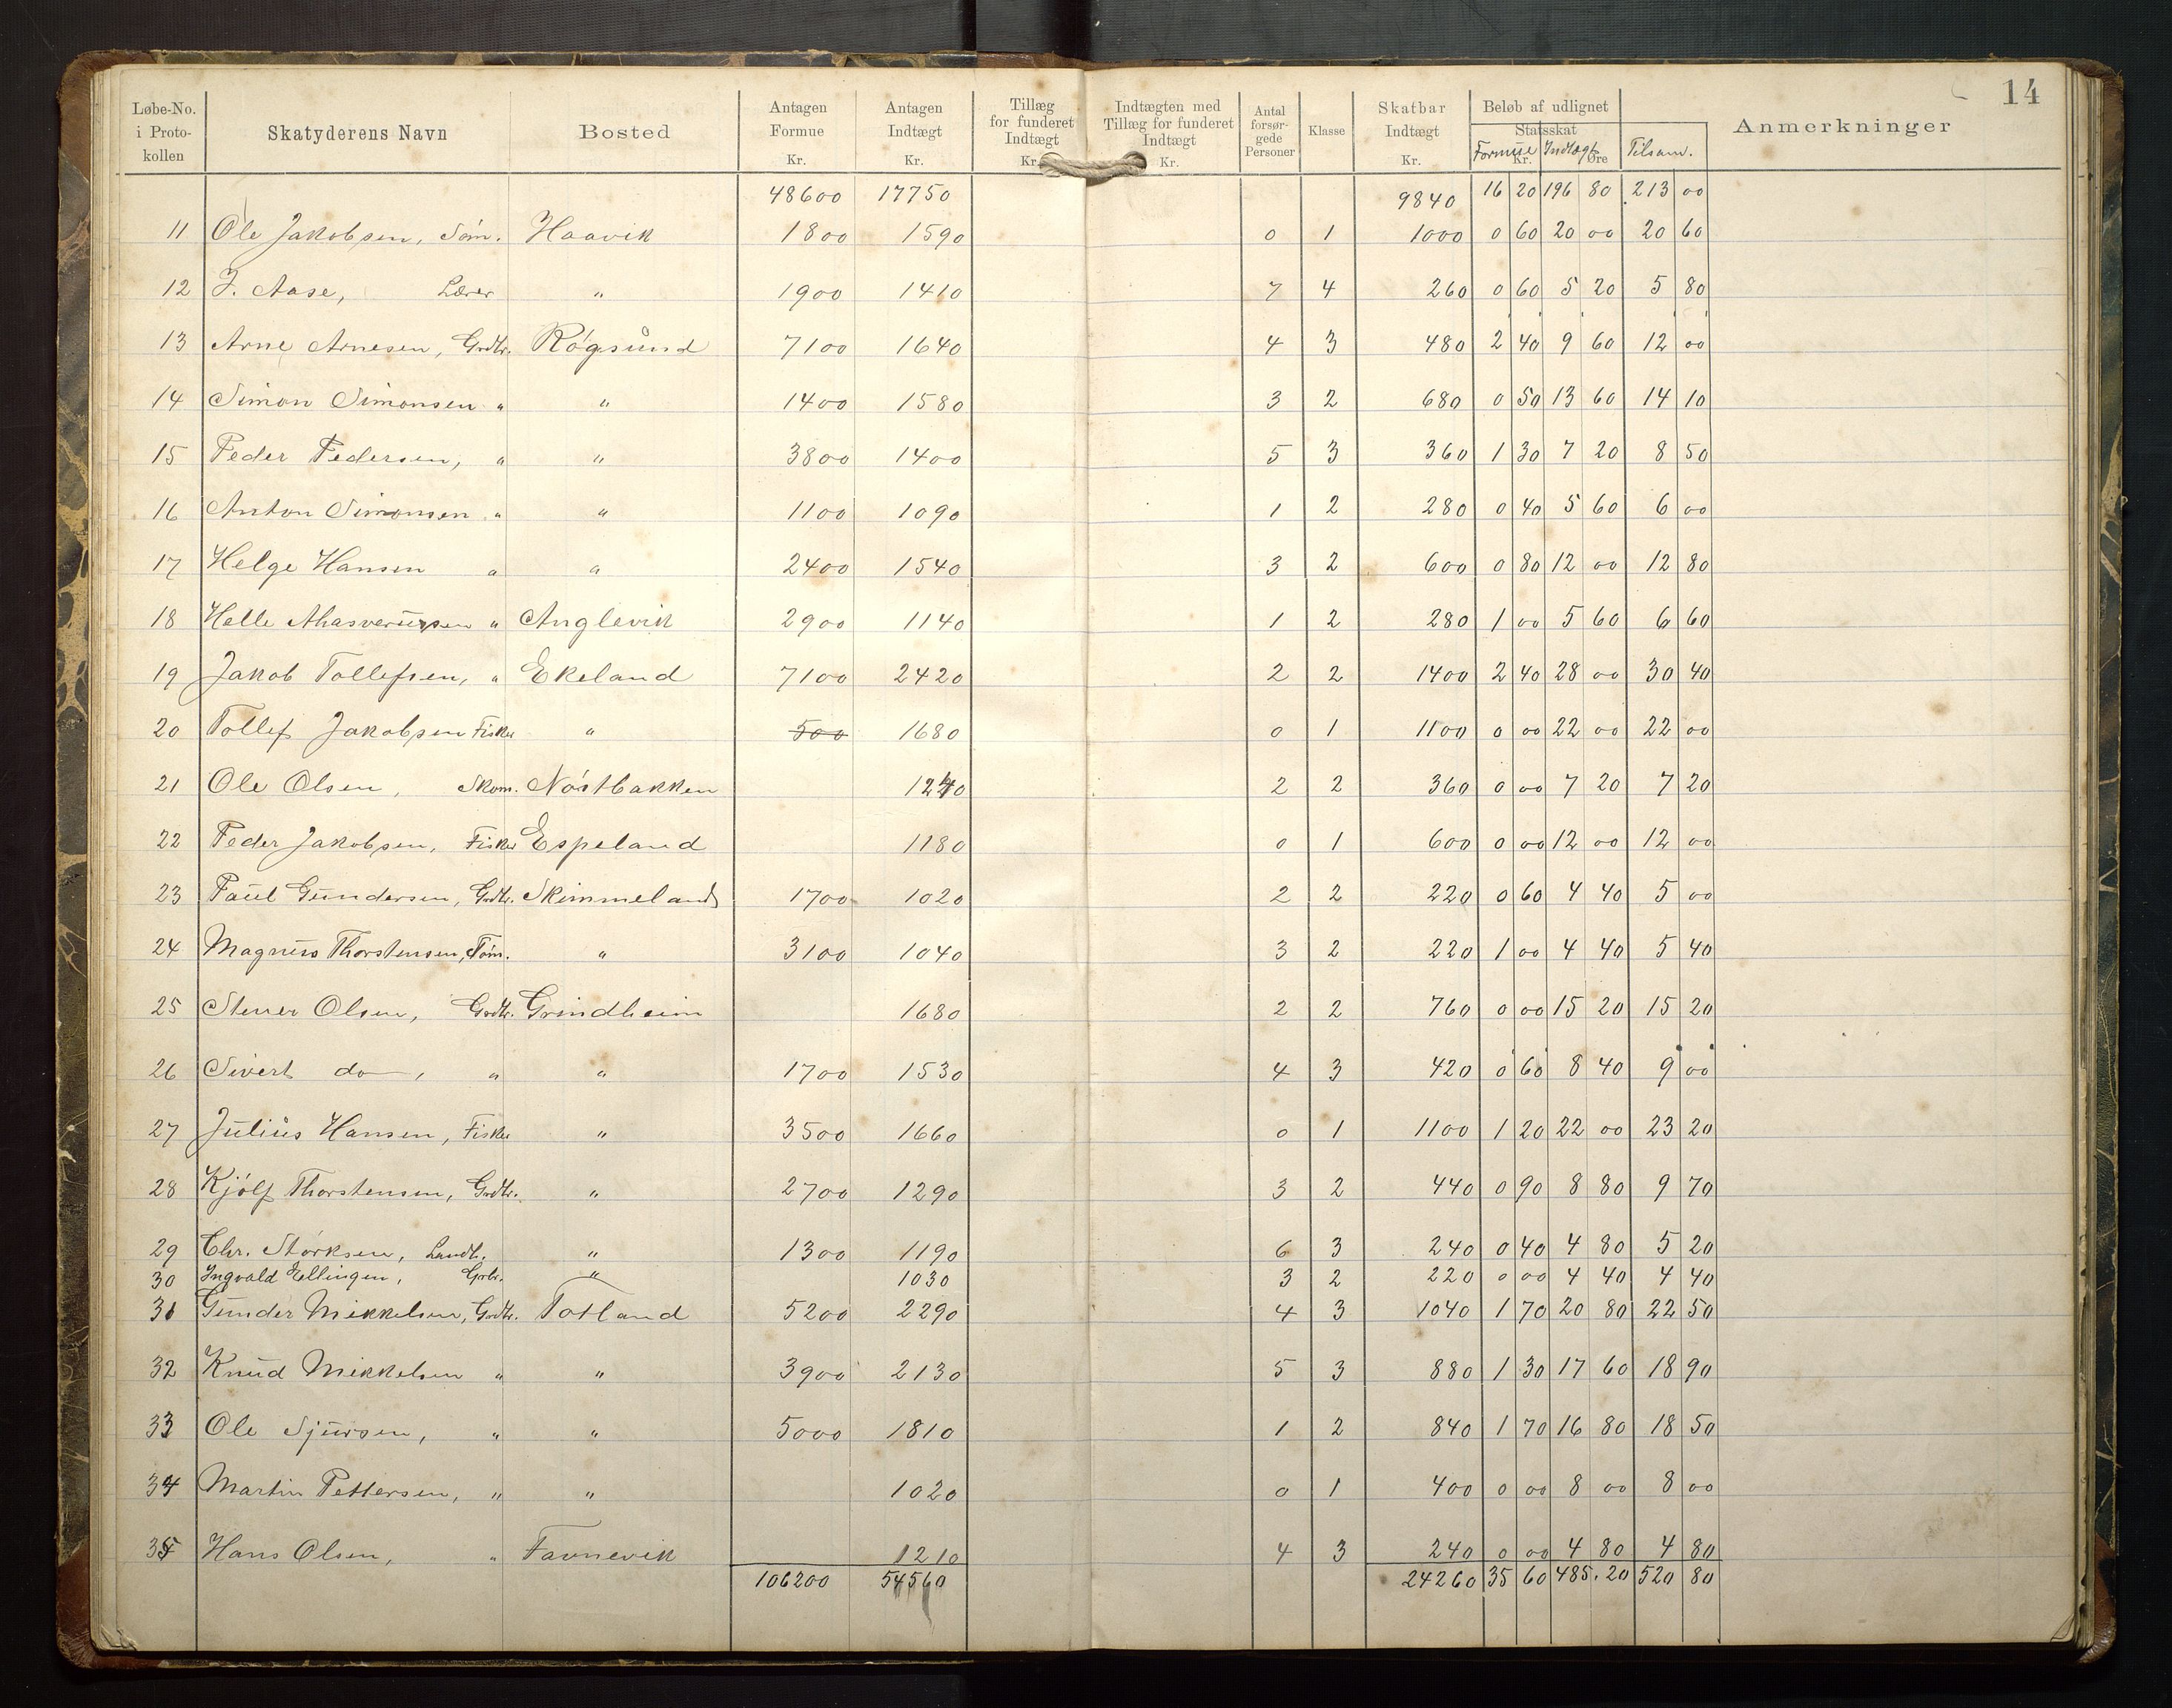 14
Løbe-No. i Proto-kollen | Skatyderens Navn | Bosted | Antagen Formue Kr. | Antagen Indtægt Kr. | Tillæg for funderet Indtægt Kr. | Indtægten med Tillæg for funderet Indtægt Kr. | Antal forsør-gede Personer | Klasse | Skatbar Indtægt Kr. | Beløb af udlignet Statsskat Kr. Øre Formue Indtægt | Tilsam. | Anmerkninger
48600 17750 9840 16 20 196 80 213 00
11 Ole Jakobsen, Søm. Haavik 1800 1590 0 1 1000 0 60 20 00 20 60
12 J. Aase, Lærer " 1900 1410 7 4 260 0 60 5 20 5 80
13 Arne Arnesen, Grdbr. Røgsund 7100 1640 4 3 480 2 40 9 60 12 00
14 Simon Simonsen " " 1400 1580 3 2 680 0 50 13 60 14 10
15 Peder Pedersen, " " 3800 1400 5 3 360 1 30 7 20 8 50
16 Anton Simonsen " " 1100 1090 1 2 280 0 40 5 60 6 00
17 Helge Hansen " " 2400 1540 3 2 600 0 80 12 00 12 80
18 Helle Ahasverussen " Anglevik 2900 1140 1 2 280 1 00 5 60 6 60
19 Jakob Tollefsen, " Ekeland 7100 2420 2 2 1400 2 40 28 00 30 40
20 Tollef Jakobsen Fisker " 500 1680 0 1 1100 0 00 22 00 22 00
21 Ole Olsen, Skom. Nøstbakken 1240 2 2 360 0 00 7 20 7 20
22 Peder Jakobsen, Fisker Espeland 1180 0 1 600 0 00 12 00 12 00
23 Paul Gundersen, Grdbr. Skimmeland 1700 1020 2 2 220 0 60 4 40 5 00
24 Magnus Thorstensen, Tøm. " 3100 1040 3 2 220 1 00 4 40 5 40
25 Stener Olsen, Grdbr. Grindheim 1680 2 2 760 0 00 15 20 15 20
26 Sivert do, " " 1700 1530 4 3 420 0 60 8 40 9 00
27 Julius Hansen, Fisker " 3500 1660 0 1 1100 1 20 22 00 23 20
28 Kjølf Thorstensen, Grdbr. " 2700 1290 3 2 440 0 90 8 80 9 70
29 Chr. Størksen, Landh. " 1300 1190 6 3 240 0 40 4 80 5 20
30 Ingvald Ellingsen, Grbr. " 1030 3 2 220 0 00 4 40 4 40
31 Gunder Mikkelsen, Grdbr. Totland 5200 2290 4 3 1040 1 70 20 80 22 50
32 Knud Mikkelsen " " 3900 2130 5 3 880 1 30 17 60 18 90
33 Ole Sjursen, " " 5000 1810 1 2 840 1 70 16 80 18 50
34 Martin Pettersen, " " 1020 0 1 400 0 00 8 00 8 00
35 Hans Olsen, " Favnevik 1210 4 3 240 0 00 4 80 4 80
106200 54560 24260 35 60 485.20 520 80